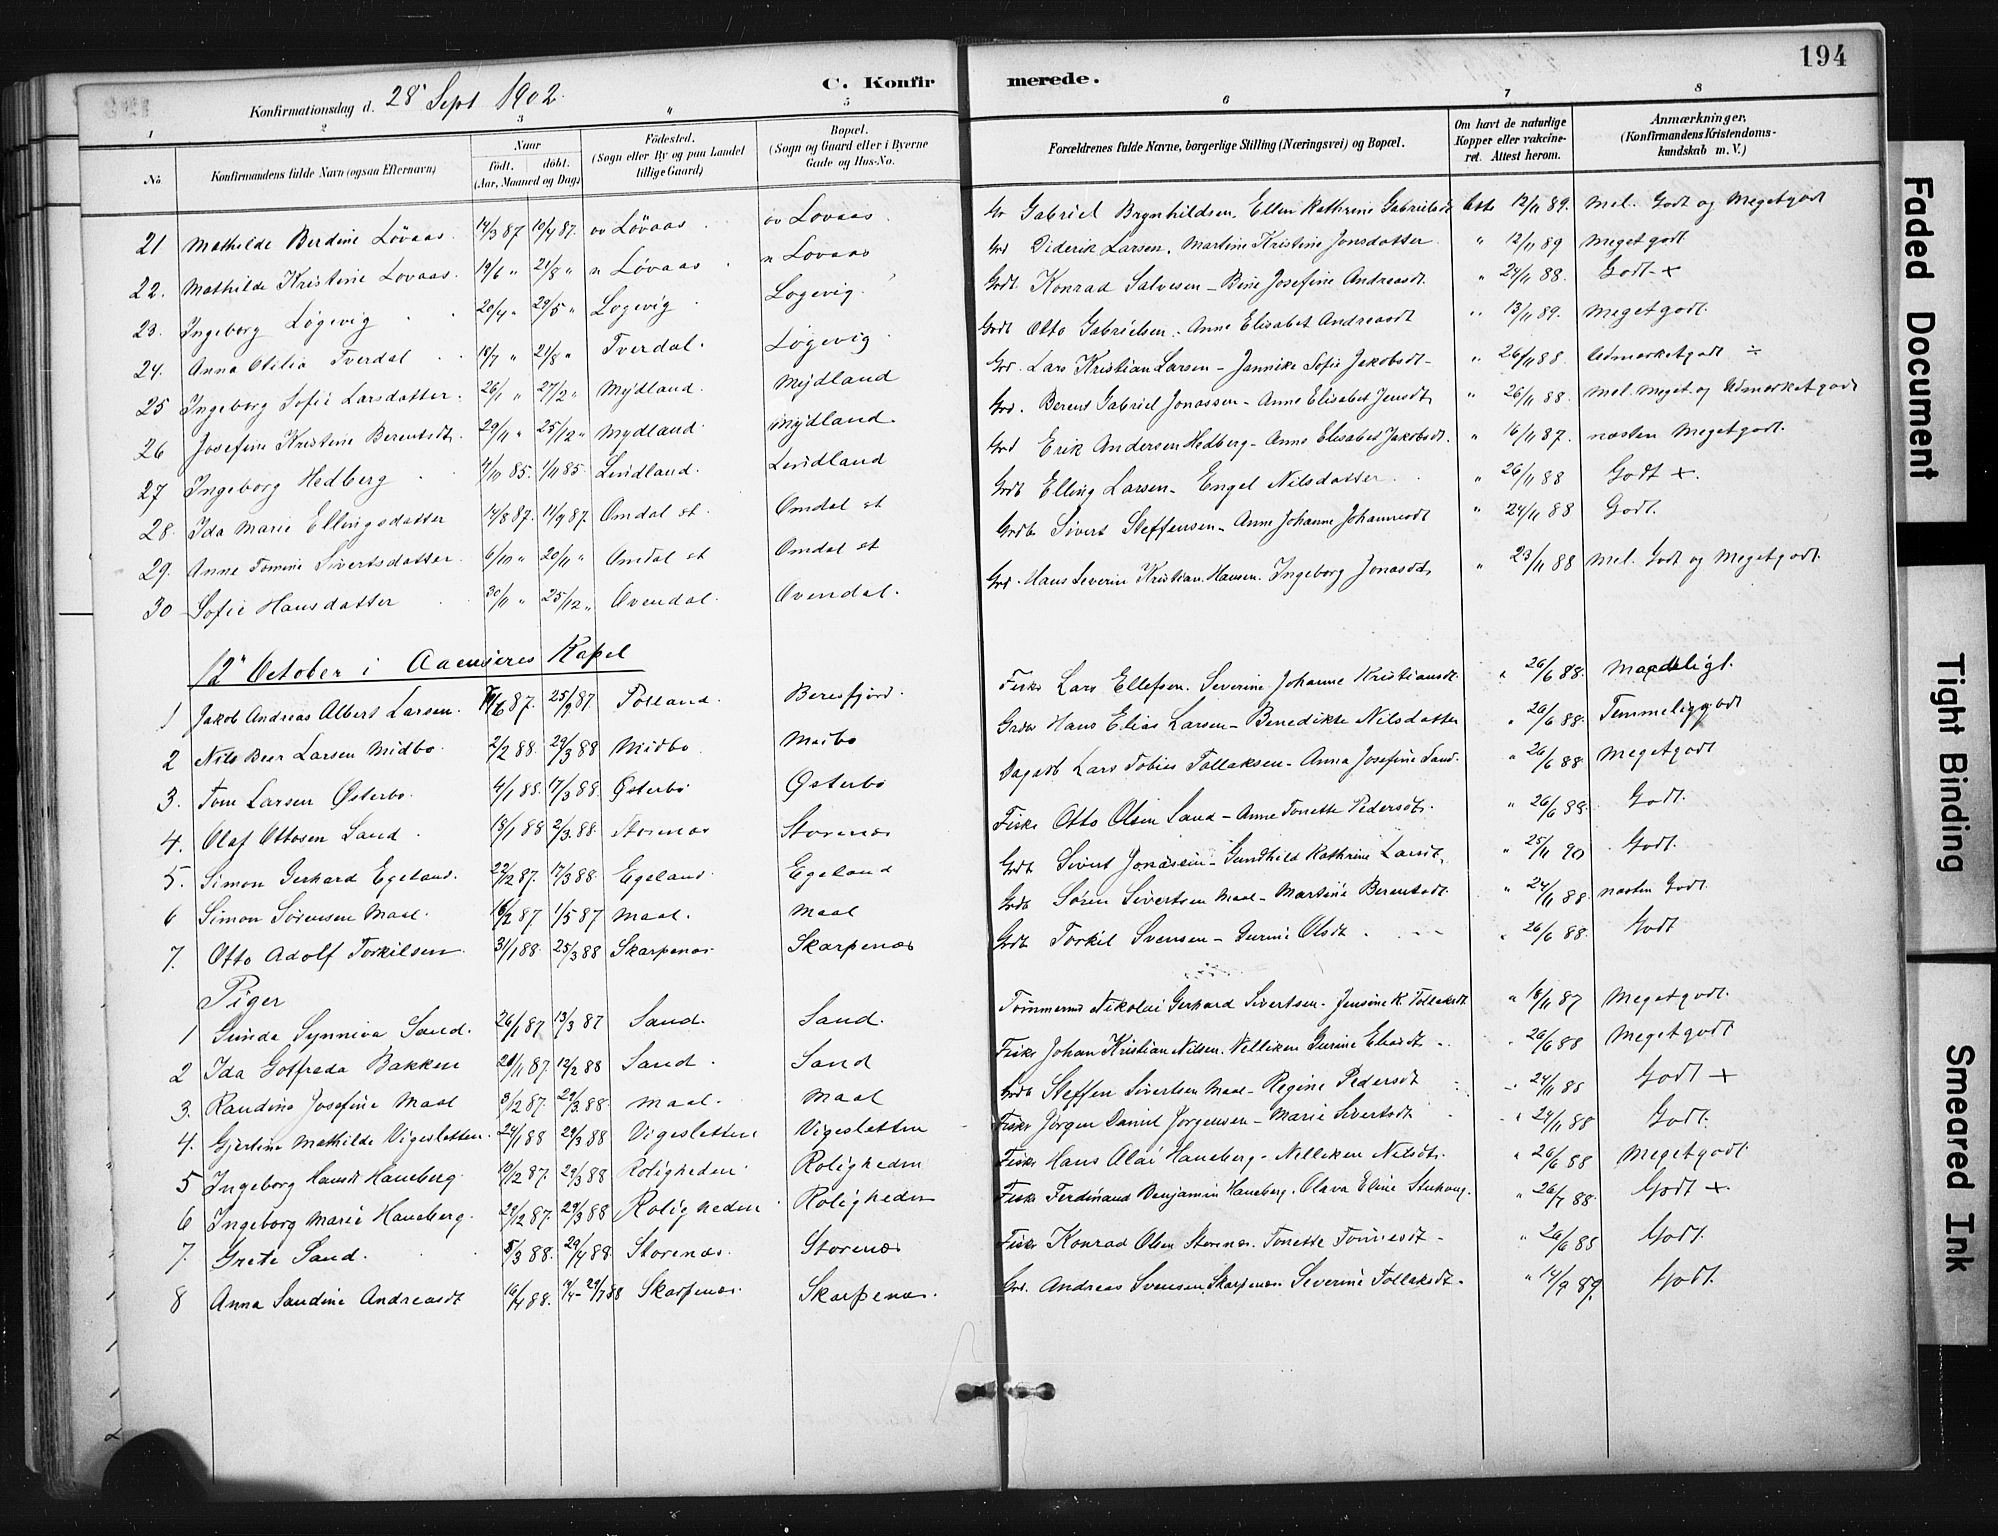 194
C. Konfirmerede.
Konfirmationsdag d. 28 Sept 1902.
1 2 3 " 5 6 7 8
No
Konfirmandens fulde Navn (ogsaa Efternavn)
Naar
født. døbt.
(Aar, Maaned og Dag)
Fødested.
(Sogn eller By og paa Landet
tillige Gaard)
Bopæl.
(Sogn og Gaard eller i Byerne
Gade og Hus-No.
Forældrenes fulde Navne, borgerlige Stilling (Næringsvei) og Bopæl.
Om havt de naturlige
Kopper eller vakcine-
ret. Attest herom.
Anmærkninger,
(Konfirmandens Kristendoms-
kundskab m. V.)
21 Mathilde Berdine Løvaas. 14/3 87 10/4 87. ov Løvaas. ov Lovaas. Gr Gabriel Brynhildsen. Ellen Kathrine Gabrielsdt 12/11 89. Mel. Godt og Megetgodt
22. Mathilde Kristine Lovaas. 19/6 " 21/8 " n Løvaas. n Lovaas Grd Diderik Larsen. Martine Kristine Jonsdatter. " 12/11 89 Megetgodt
23. Ingeborg Løgevig 20/4 " 29/5 " Logevig Logevig. Grdt. Konrad Salvesen - Bine Josefine Andreasdt. " 24/11 88. Godt +
24. Anna Otilia Tverdal 18/7 " 21/8 " Tverdal. Løgevig Grdt Otto Gabrielsen. Anne Elisabet Andreasdt " 13/11 89. Megetgodt.
25 Ingeborg Sofie Larsdatter. 26/1 " 27/2 " Mydland. Mydland Grd. Lars Kristian Larsen - Jannike Sofie Jakobsdt - " 26/11 88 Udmerketgodt ÷
26 Josefine Kristine Berentsdt. 29/11 " 25/12 " Mydland. Mydland. Grd. Berent Gabriel Jonassen - Anne Elisabet Jensdt " 26/11 88. Mel. Meget. og Udmerketgodt
27 Ingeborg Hedberg 4/10 85. 1/11 85. Lindland. Lindland Grd Erik Andersen Hedberg - Anne Elisabet Jakobsdt. " 16/11 87. næsten Megetgodt.
28. Ida Marie Ellingsdatter 14/8 87. 11/9 87. Omdal st. Omdal st Grdb Elling Larsen - Engel Nilsdatter " 26/11 88 Godt +.
29. Anne Tomine Sivertsdatter. 6/10 " 20/11 " Omdal st Omdal st Grdb Sivert Steffensen - Anne Johanne Johannesdt " 24/11 88 Godt.
30 Sofie Hansdatter 30/11 " 25/12 " Ovendal. Ovendal. Grd. Hans Severin Kristian Hansen. Ingeborg Jonasdt " 23/11 88 Mel. Godt og Megetgodt.
12" October i Aaenseres Kapel
1 Jakob Andreas Albert Larsen. 87. 25/9 87. Tosland. Beresfjord. Fisk. Lars Ellefsen. Severine Johanne Kristiansdt. " 26/6 88. Maadeligt.
2 Nils Beer Larsen Midbo. 2/2 88. 29/3 88 Midbo. Meibo Grdbr Hans Elias Larsen - Benedikte Nilsdatter " 26/6 88. Temmeliggodt
3. Tom Larsen Østerbø. 4/1 88. 17/3 88. Østerbø Østerbø Dagarb Lars Tobias Tollaksen - Anna Josefine Sand. " 26/6 88. Megetgodt
4. Olaf Ottosen Sand. 18/1 88 2/3 88. Storenes Storenæs Fisk. Otto Olsen Sand - Anne Tonette Pedersdt. " 26/6 88. Godt.
5. Simon Gerhard Egeland. 22/12 87. 17/3 88. Egeland. Egeland Grdt Sivert Jonassen - Gundhild Kathrine Larsdt, " 25/11 90. Godt.
6 Simon Sørensen Maal. 16/2 87 1/5 87 Maal. Maal Grdb Søren Sivertsen Maal - Martine Berentsdt. " 24/11 88 næsten Godt.
7. Otto Adolf Torkilsen 31/1 88. 25/3 88 Skarpenæs Skarpenæs Grdt Torkil Svensen - Gurine Olsdt. " 26/6 88. Godt
Piger
1 Gunda Synneva Sand. 26/1 87. 13/3 87 Sand. Sand. Tømmermd Nikolai Gerhard Sivertsen - Jensine K. Tollaksdt " 18/11 87 Megetgodt.
2 Ida Gotfreda Bakken 21/11 87. 12/2 88 Sand. Sand Fisk. Johan Kristian Nilsen. Nelliken Gurine Eliasdt - " 26/6 88 Megetgodt
3. Randine Josefine Maal 3/12 87. 29/3 88. Maal. Maal Grdb Steffen Sivertsen Maal - Regine Pedersdt " 24/11 88 Godt +
4. Gjertine Mathilde Vigesletten. 24/1 88 29/3 88 Vigesletten Vigesletten Fisk. Jørgen Daniel Jørgensen - Marie Sivertsdt " 24/11 88 Godt.
5 Ingeborg Hansdt Haneberg 10/2 87. 29/3 88 Roligheden Roligheden Fisk. Hans Olai Haneberg - Nelliken Nilsdt. " 26/6 88 Megetgodt.
6 Ingeborg Marie Haneberg. 29/12 87. 29/3 88 Roligheden Roligheden Fisk. Ferdinand Benjamin Haneberg. Olava Eline " 26/7 88. Godt +
7. Grete Sand. 5/3 88. 29/4 88. Storenæs. Storenæs Fisk. Konrad Olsen Storenæs. Tonette Tønnesdt - " 26/6 88 Godt.
8 Anna Sandine Andreasdt 16/4 88. 17/4 - 29/7 88 Skarpenæs. Skarpenæs. Grd. Andreas Svensen Skarpenæs Severine Tollaksdt. " 14/9 89. Godt.
Faded Document
Tight Binding
Smeared Ink